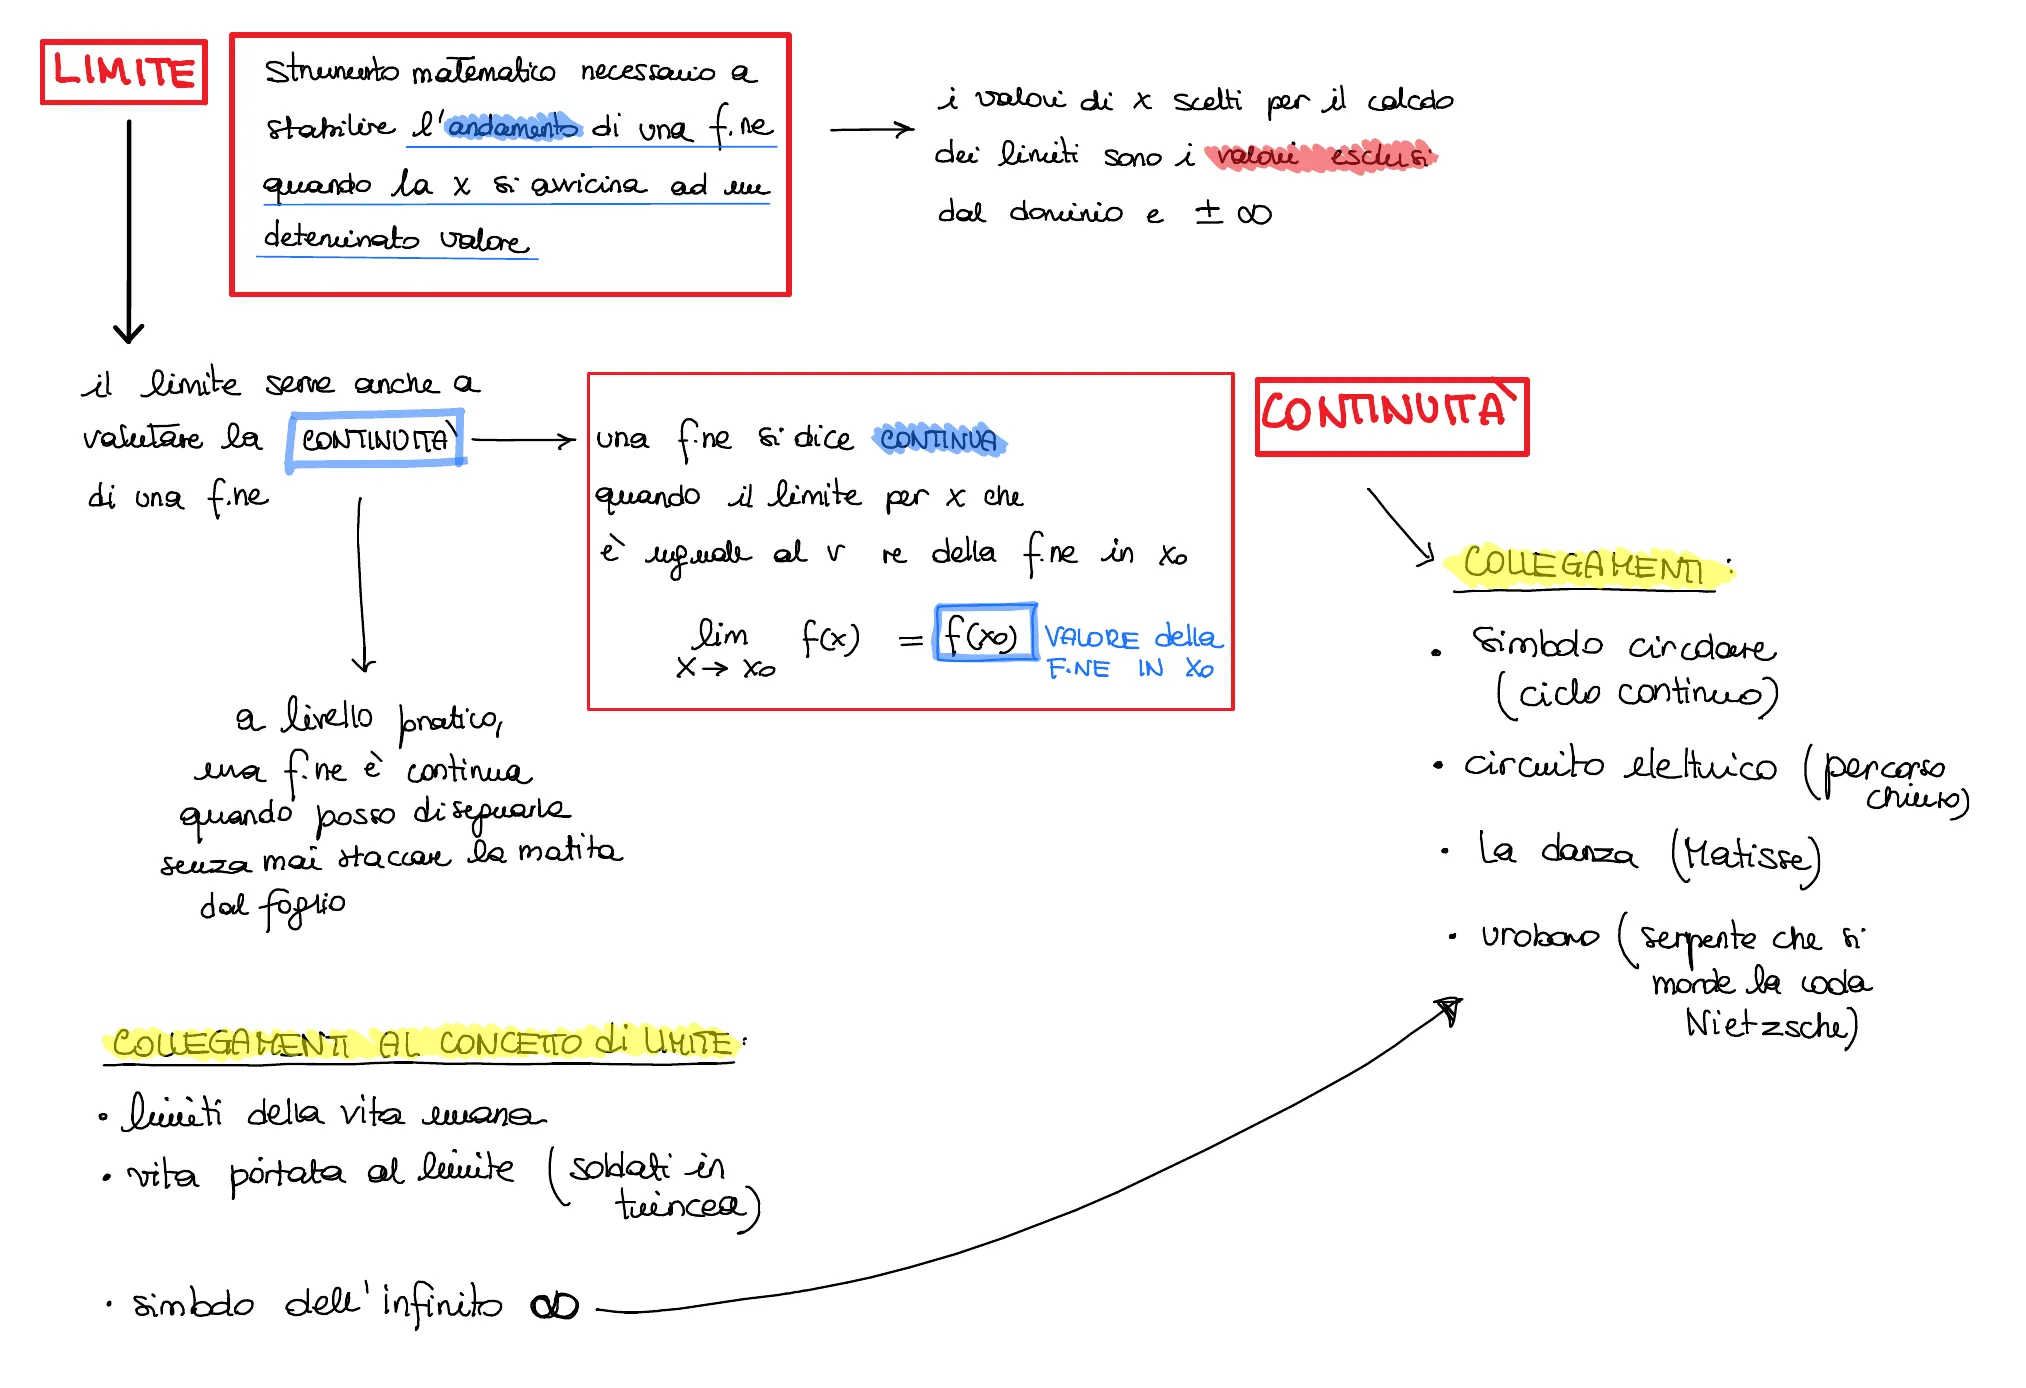 LIMITE
strumento matematico necessario a
stabilire l'andamento di una f.ne
quando la x si avvicina ad un
determinato valore
i valori di x scelti per il calcolo
dei limiti sono i valori esclusi
dal dominio e ± ∞
il limite serve anche a
valutare la CONTINUITÀ
di una f.ne
una f.ne si dice CONTINUA
quando il limite per x che
è uguale al v re della f.ne in x₀
lim f(x) = f(x₀)
x → x₀
VALORE della
F.NE IN X₀
CONTINUITÀ
COLLEGAMENTI:
• simbolo circolare
(ciclo continuo)
• circuito elettrico (percorso
chiuso)
• La danza (Matisse)
• uroboro (serpente che si
morde la coda
Nietzsche)
a livello pratico,
una f.ne è continua
quando posso disegnarla
senza mai staccare la matita
dal foglio
COLLEGAMENTI AL CONCETTO di LIMITE:
• limiti della vita umana
• vita portata al limite (soldati in
trincea)
• simbolo dell'infinito ∞